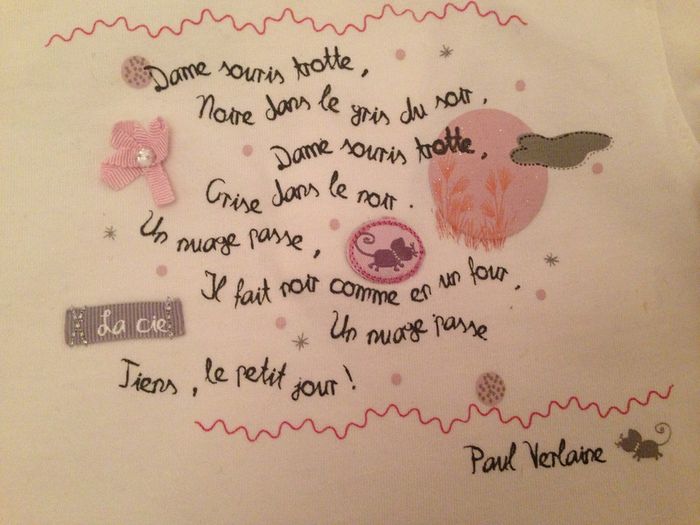 Dame souris trotte,
Noire dans le gris du soir,
Dame souris trotte,
Grise dans le noir.
Un nuage passe,
Il fait noir comme en un four,
Un nuage passe
La cie
Tiens, le petit jour!
Paul Verlaine